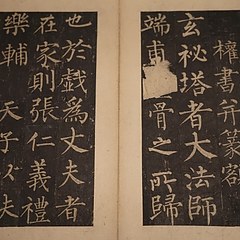 權書并篆額
玄秘塔者大法師
端甫骨之所歸
也於戲為丈夫者
在家則張仁義禮
樂輔天子以扶